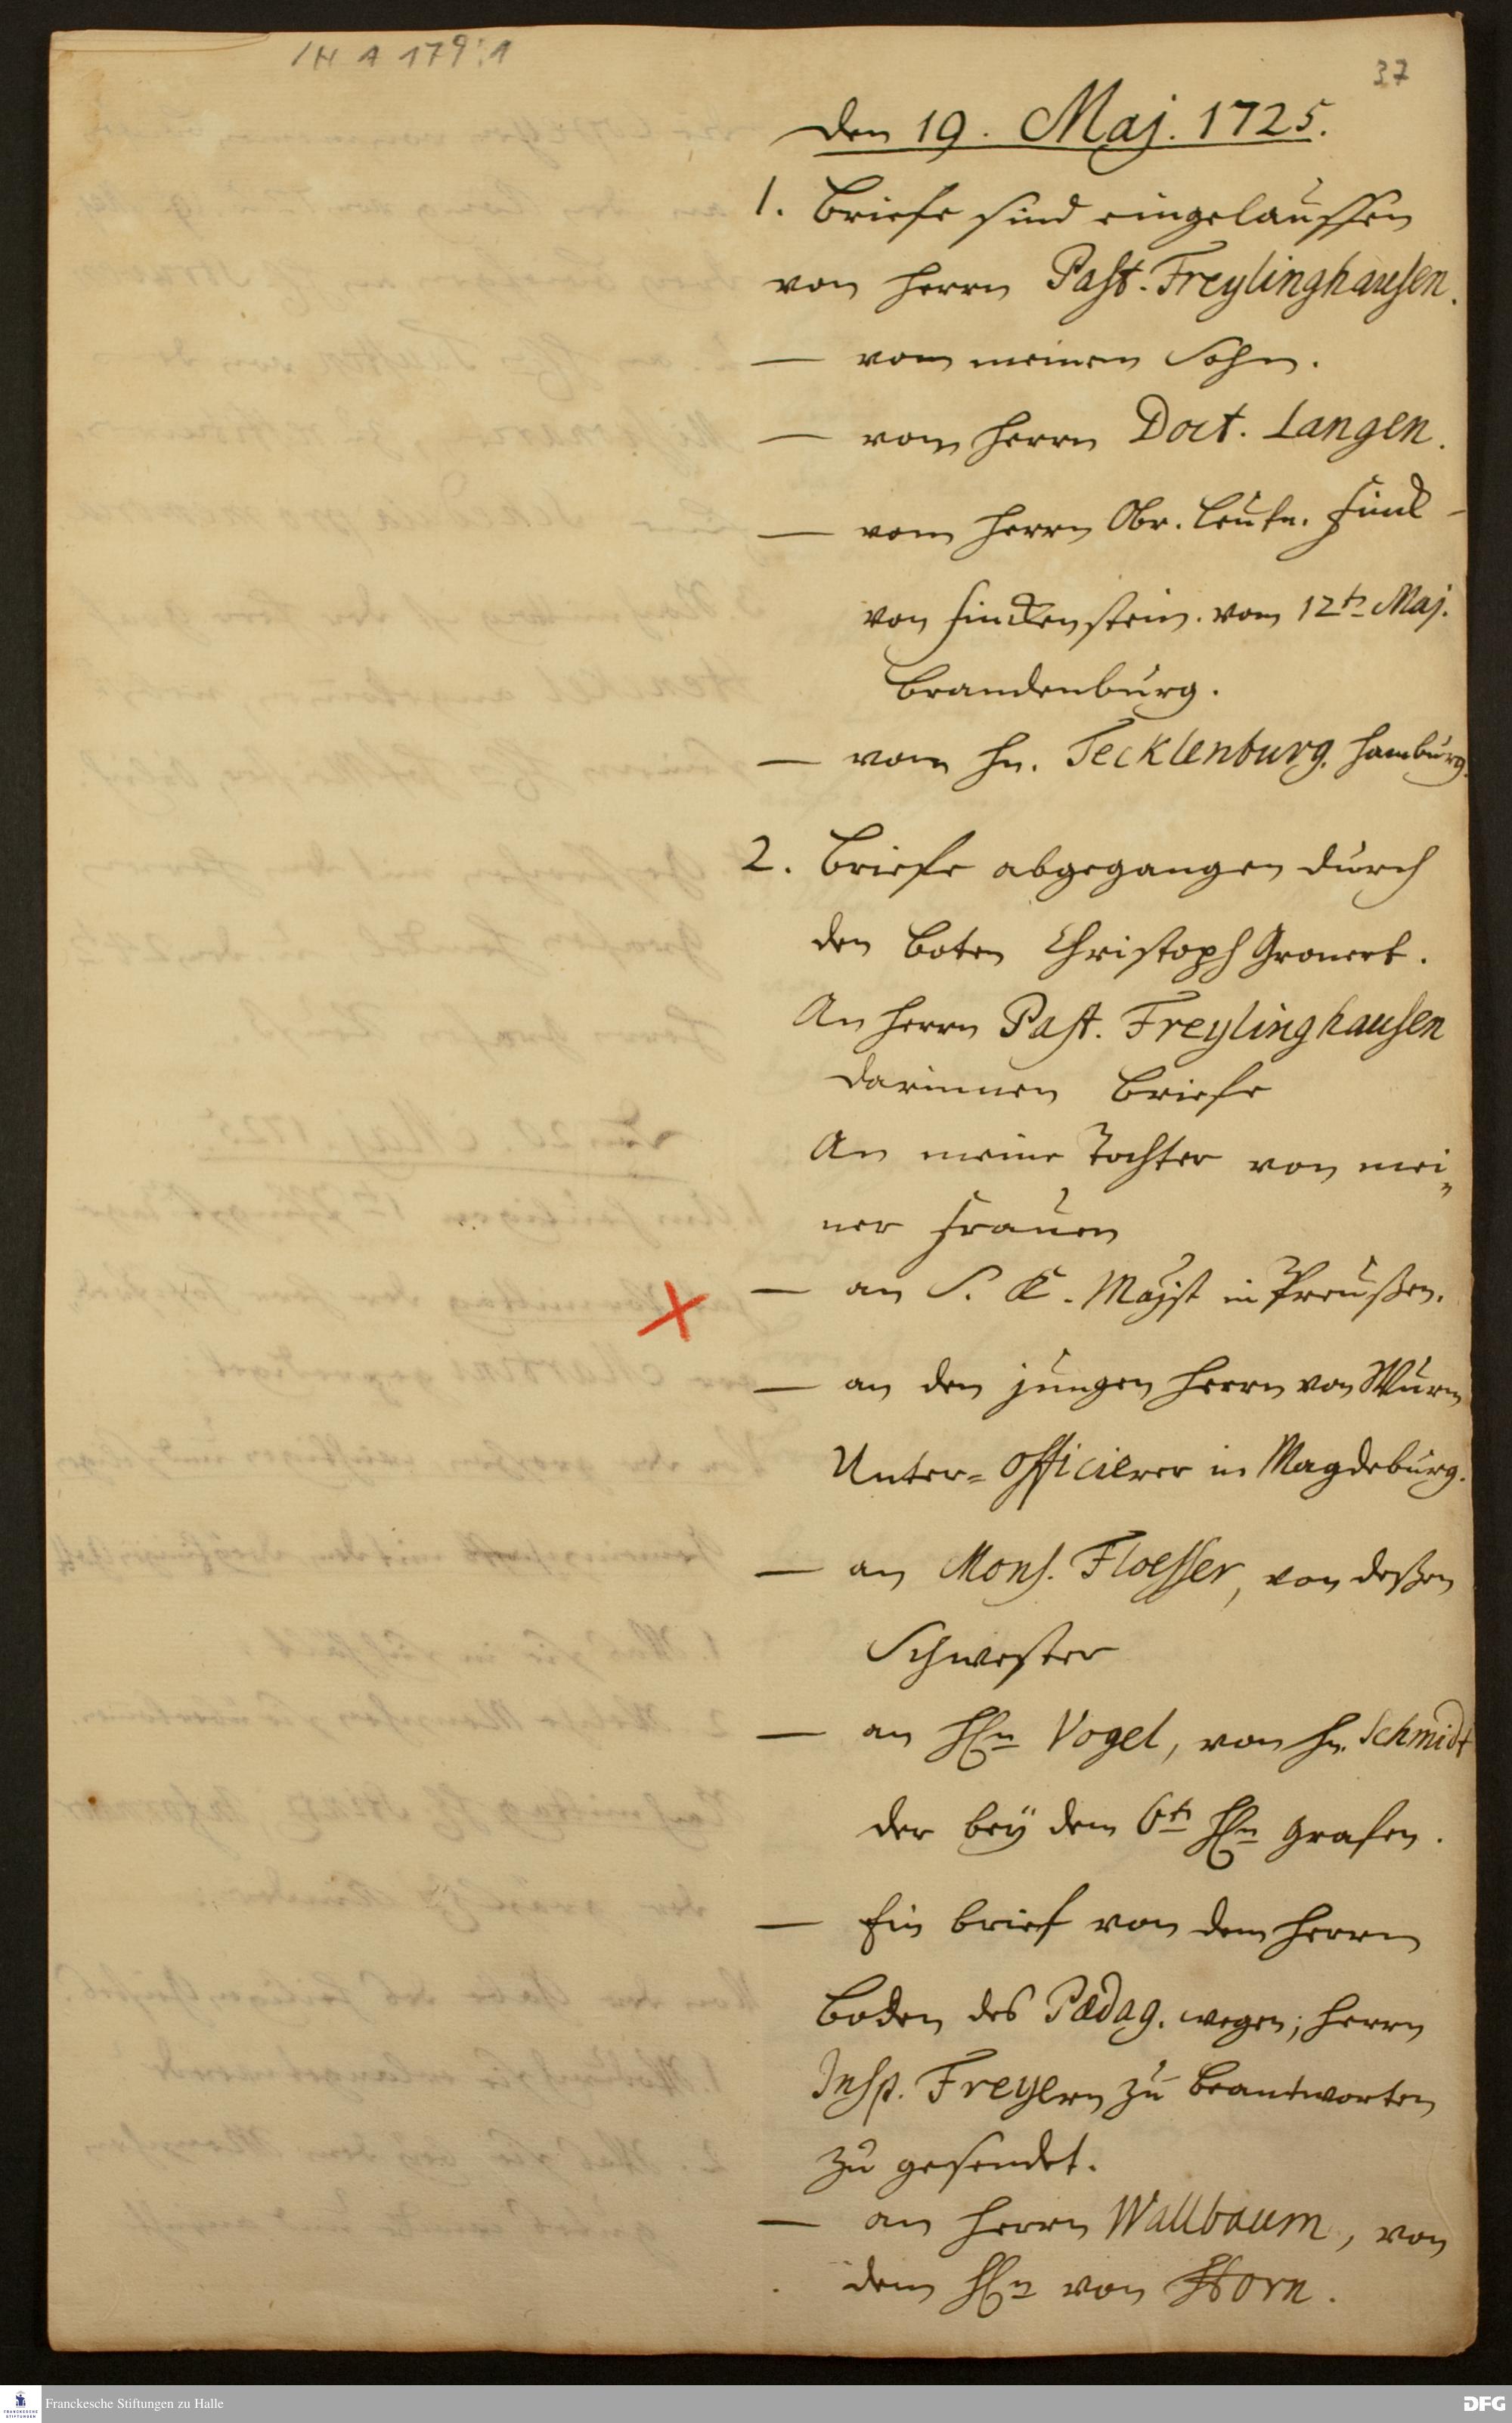 IH A 179:1
37
den 19. Maj. 1725.
1. Briefe sind eingelauffen
von Herrn Past. Freylinghausen.
— von meinem Sohn.
— vom Herrn Doct. Langen.
— vom Herrn Obr. Leutn. Finck-
von Finckenstein. vom 12tn Maj.
Brandenburg.
— vom Hn. Tecklenburg. Hamburg.
2. Briefe abgegangen durch
den Boten Christoph Gronert.
An Herrn Past. Freylinghausen
darinnen Briefe
An meine Tochter von mei„
ner Frauen
— an S. K. Majst in Preußen.
— an den jungen Herrn von Wurm
Unter=Officierer in Magdeburg.
— an Mons. Floesser, von deßen
Schwester
— an HEn Vogel, von Hn. Schmidt
der beÿ dem 6tn HEn Grafen.
— Ein Brief von dem Herrn
Boden des Pædag. wegen; Herrn
Insp. Freyern zu beantworten
zu gesendet.
— an Herrn Wallbaum, von
dem HEn von Horn.
Franckesche Stiftungen zu Halle
DFG